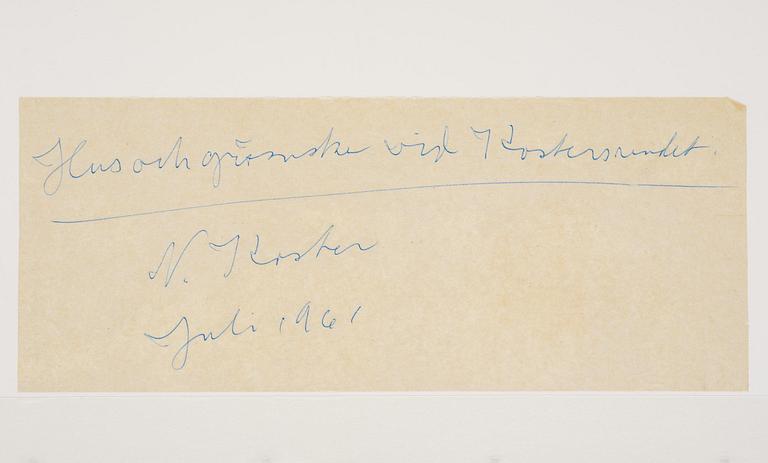 Hus och gärsuske vid Kostersundet.
N. Koster
Juli 1961